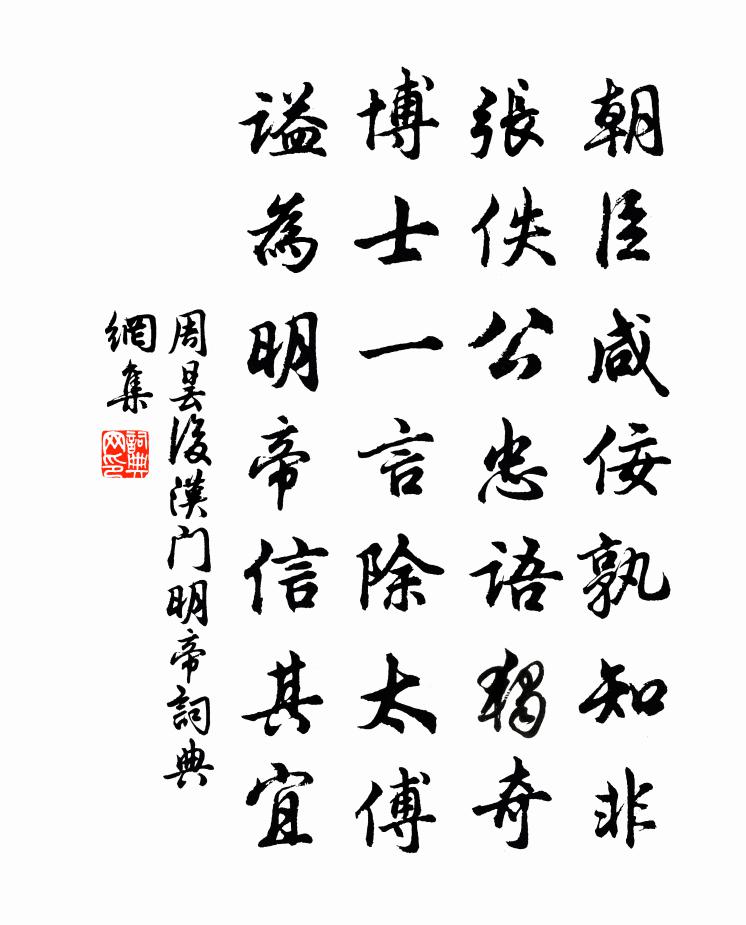 朝臣咸佞孰知非
張佚公忠語獨奇
博士一言除太傅
謚為明帝信其宜
周昙後漢门明帝詞典
網集
詞典
网印